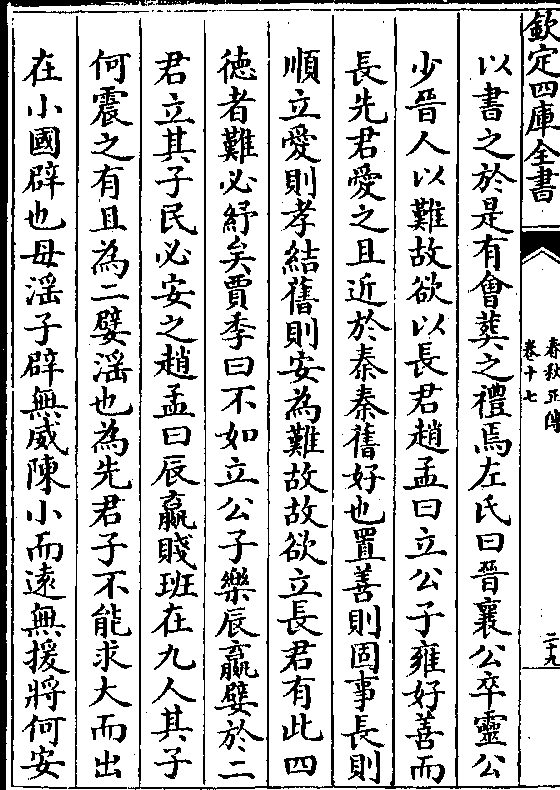 欽定四庫全書
春秋正傳
卷十七
二十九
以書之於是有會葬之禮焉左氏曰晉襄公卒靈公
少晉人以難故欲以長君趙孟曰立公子雍好善而
長先君愛之且近於秦秦舊好也置善則固事長則
順立愛則孝結舊則安為難故故欲立長君有此四
徳者難必紓矣賈季曰不如立公子樂辰嬴嬖於二
君立其子民必安之趙孟曰辰嬴賤班在九人其子
何震之有且為二嬖滛也為先君子不能求大而出
在小國辟也母滛子辟無威陳小而逺無援將何安